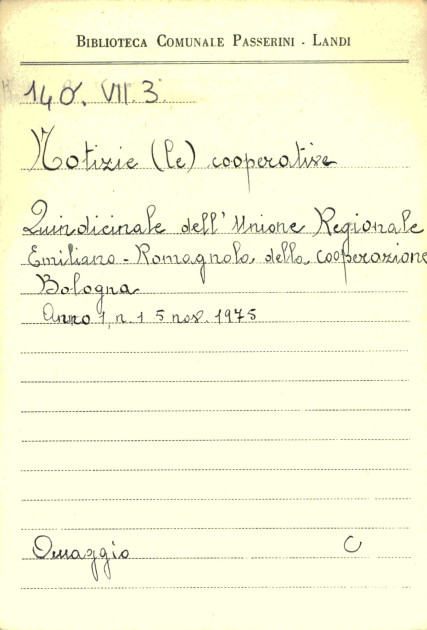 BIBLIOTECA COMUNALE PASSERINI - LANDI
140. VII. 3.
Notizie (le) cooperative
Quindicinale dell'Unione Regionale
Emiliano - Romagnola della cooperazione
Bologna
Anno 1, n. 1 5 nov. 1975
Omaggio C